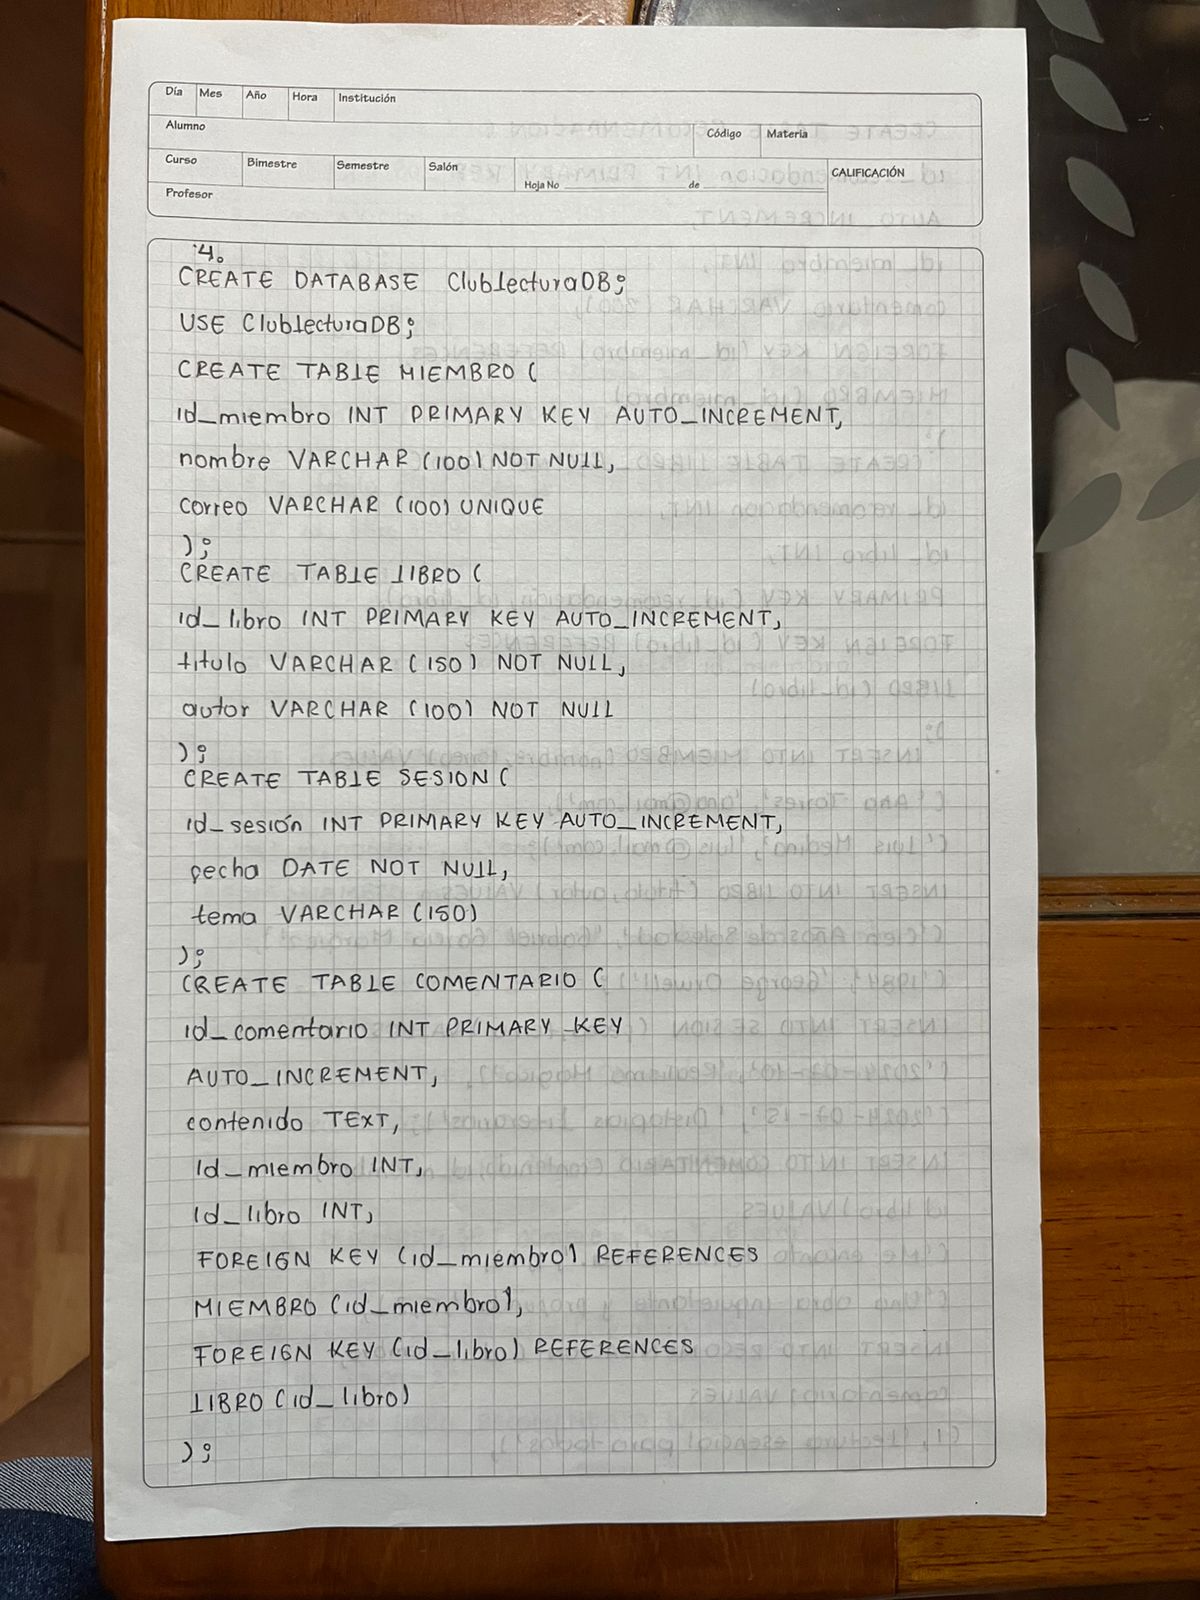 Día Mes Año Hora Institución
Alumno Código Materia
Curso Bimestre Semestre Salón Hoja No ___ de ___ CALIFICACIÓN
Profesor
4.
CREATE DATABASE ClublecturaDB;
USE ClublecturaDB;
CREATE TABLE MIEMBRO (
id_miembro INT PRIMARY KEY AUTO_INCREMENT,
nombre VARCHAR (100) NOT NULL,
correo VARCHAR (100) UNIQUE
);
CREATE TABLE LIBRO (
id_libro INT PRIMARY KEY AUTO_INCREMENT,
titulo VARCHAR (150) NOT NULL,
autor VARCHAR (100) NOT NULL
);
CREATE TABLE SESION (
id_sesión INT PRIMARY KEY AUTO_INCREMENT,
fecha DATE NOT NULL,
tema VARCHAR (150)
);
CREATE TABLE COMENTARIO (
id_comentario INT PRIMARY KEY
AUTO_INCREMENT,
contenido TEXT,
id_miembro INT,
id_libro INT,
FOREIGN KEY (id_miembro) REFERENCES
MIEMBRO (id_miembro),
FOREIGN KEY (id_libro) REFERENCES
LIBRO (id_libro)
);